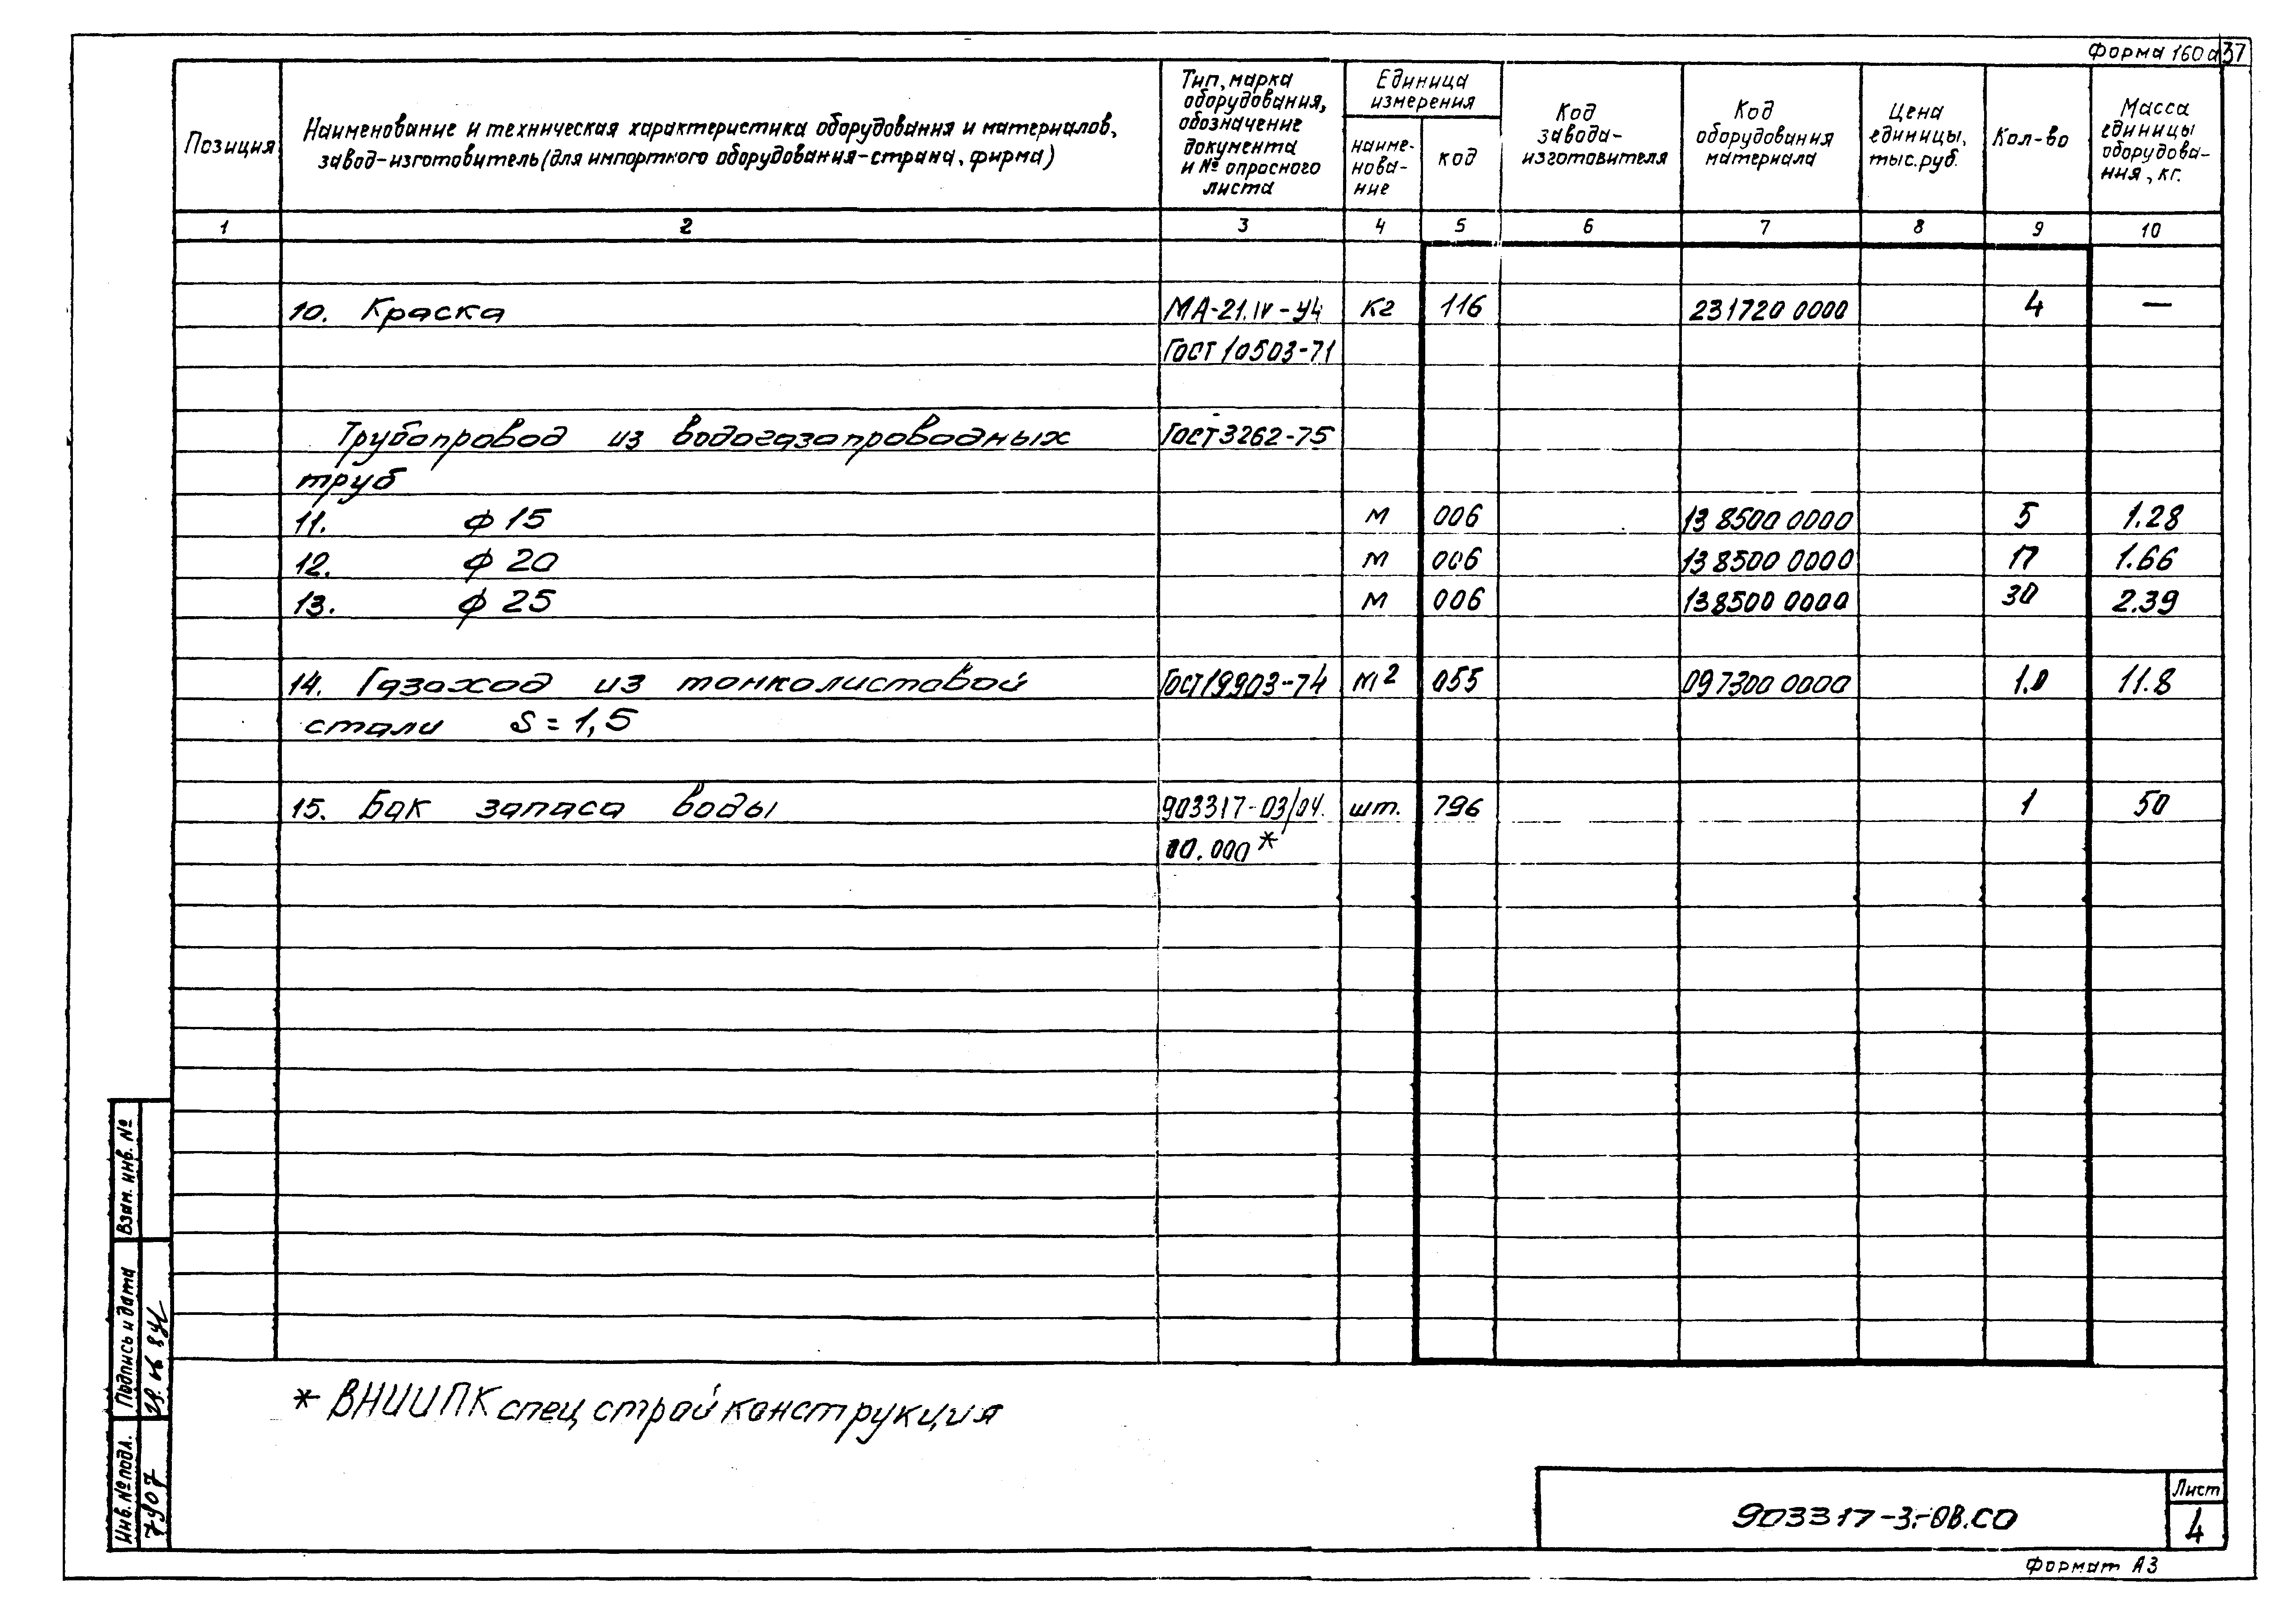 Форма 160а 37
Позиция
Наименование и техническая характеристика оборудования и материалов,
завод-изготовитель (для импортного оборудования-страна, фирма)
Тип, марка
оборудования,
обозначение
документа
и № опросного
листа
Единица
измерения
наиме-
нова-
ние
код
Код
завода-
изготовителя
Код
оборудования
материала
Цена
единицы,
тыс.руб.
Кол-во
Масса
единицы
оборудова-
ния, кг.
1 2 3 4 5 6 7 8 9 10
10. Краска МА-21.IV-У4 Кг 116 231720 0000 4 —
Гост 10503-71
Трубопровод из водогазопроводных Гост 3262-75
труб
11. ф 15 м 006 13 8500 0000 5 1.28
12. ф 20 м 006 13 8500 0000 17 1.66
13. ф 25 м 006 138500 0000 30 2.39
14. Газоход из тонколистовой Гост 19903-74 м² 055 097300 0000 1.0 11.8
стали S = 1,5
15. Бак запаса воды 903317-03/04. шт. 796 1 50
00.000 *
* ВНИИПК спец строй конструкция
Взам. инв. №
Подпись и дата
Инв. № подл.
7907
903317-3.-ОВ.СО
Лист
4
Формат А3